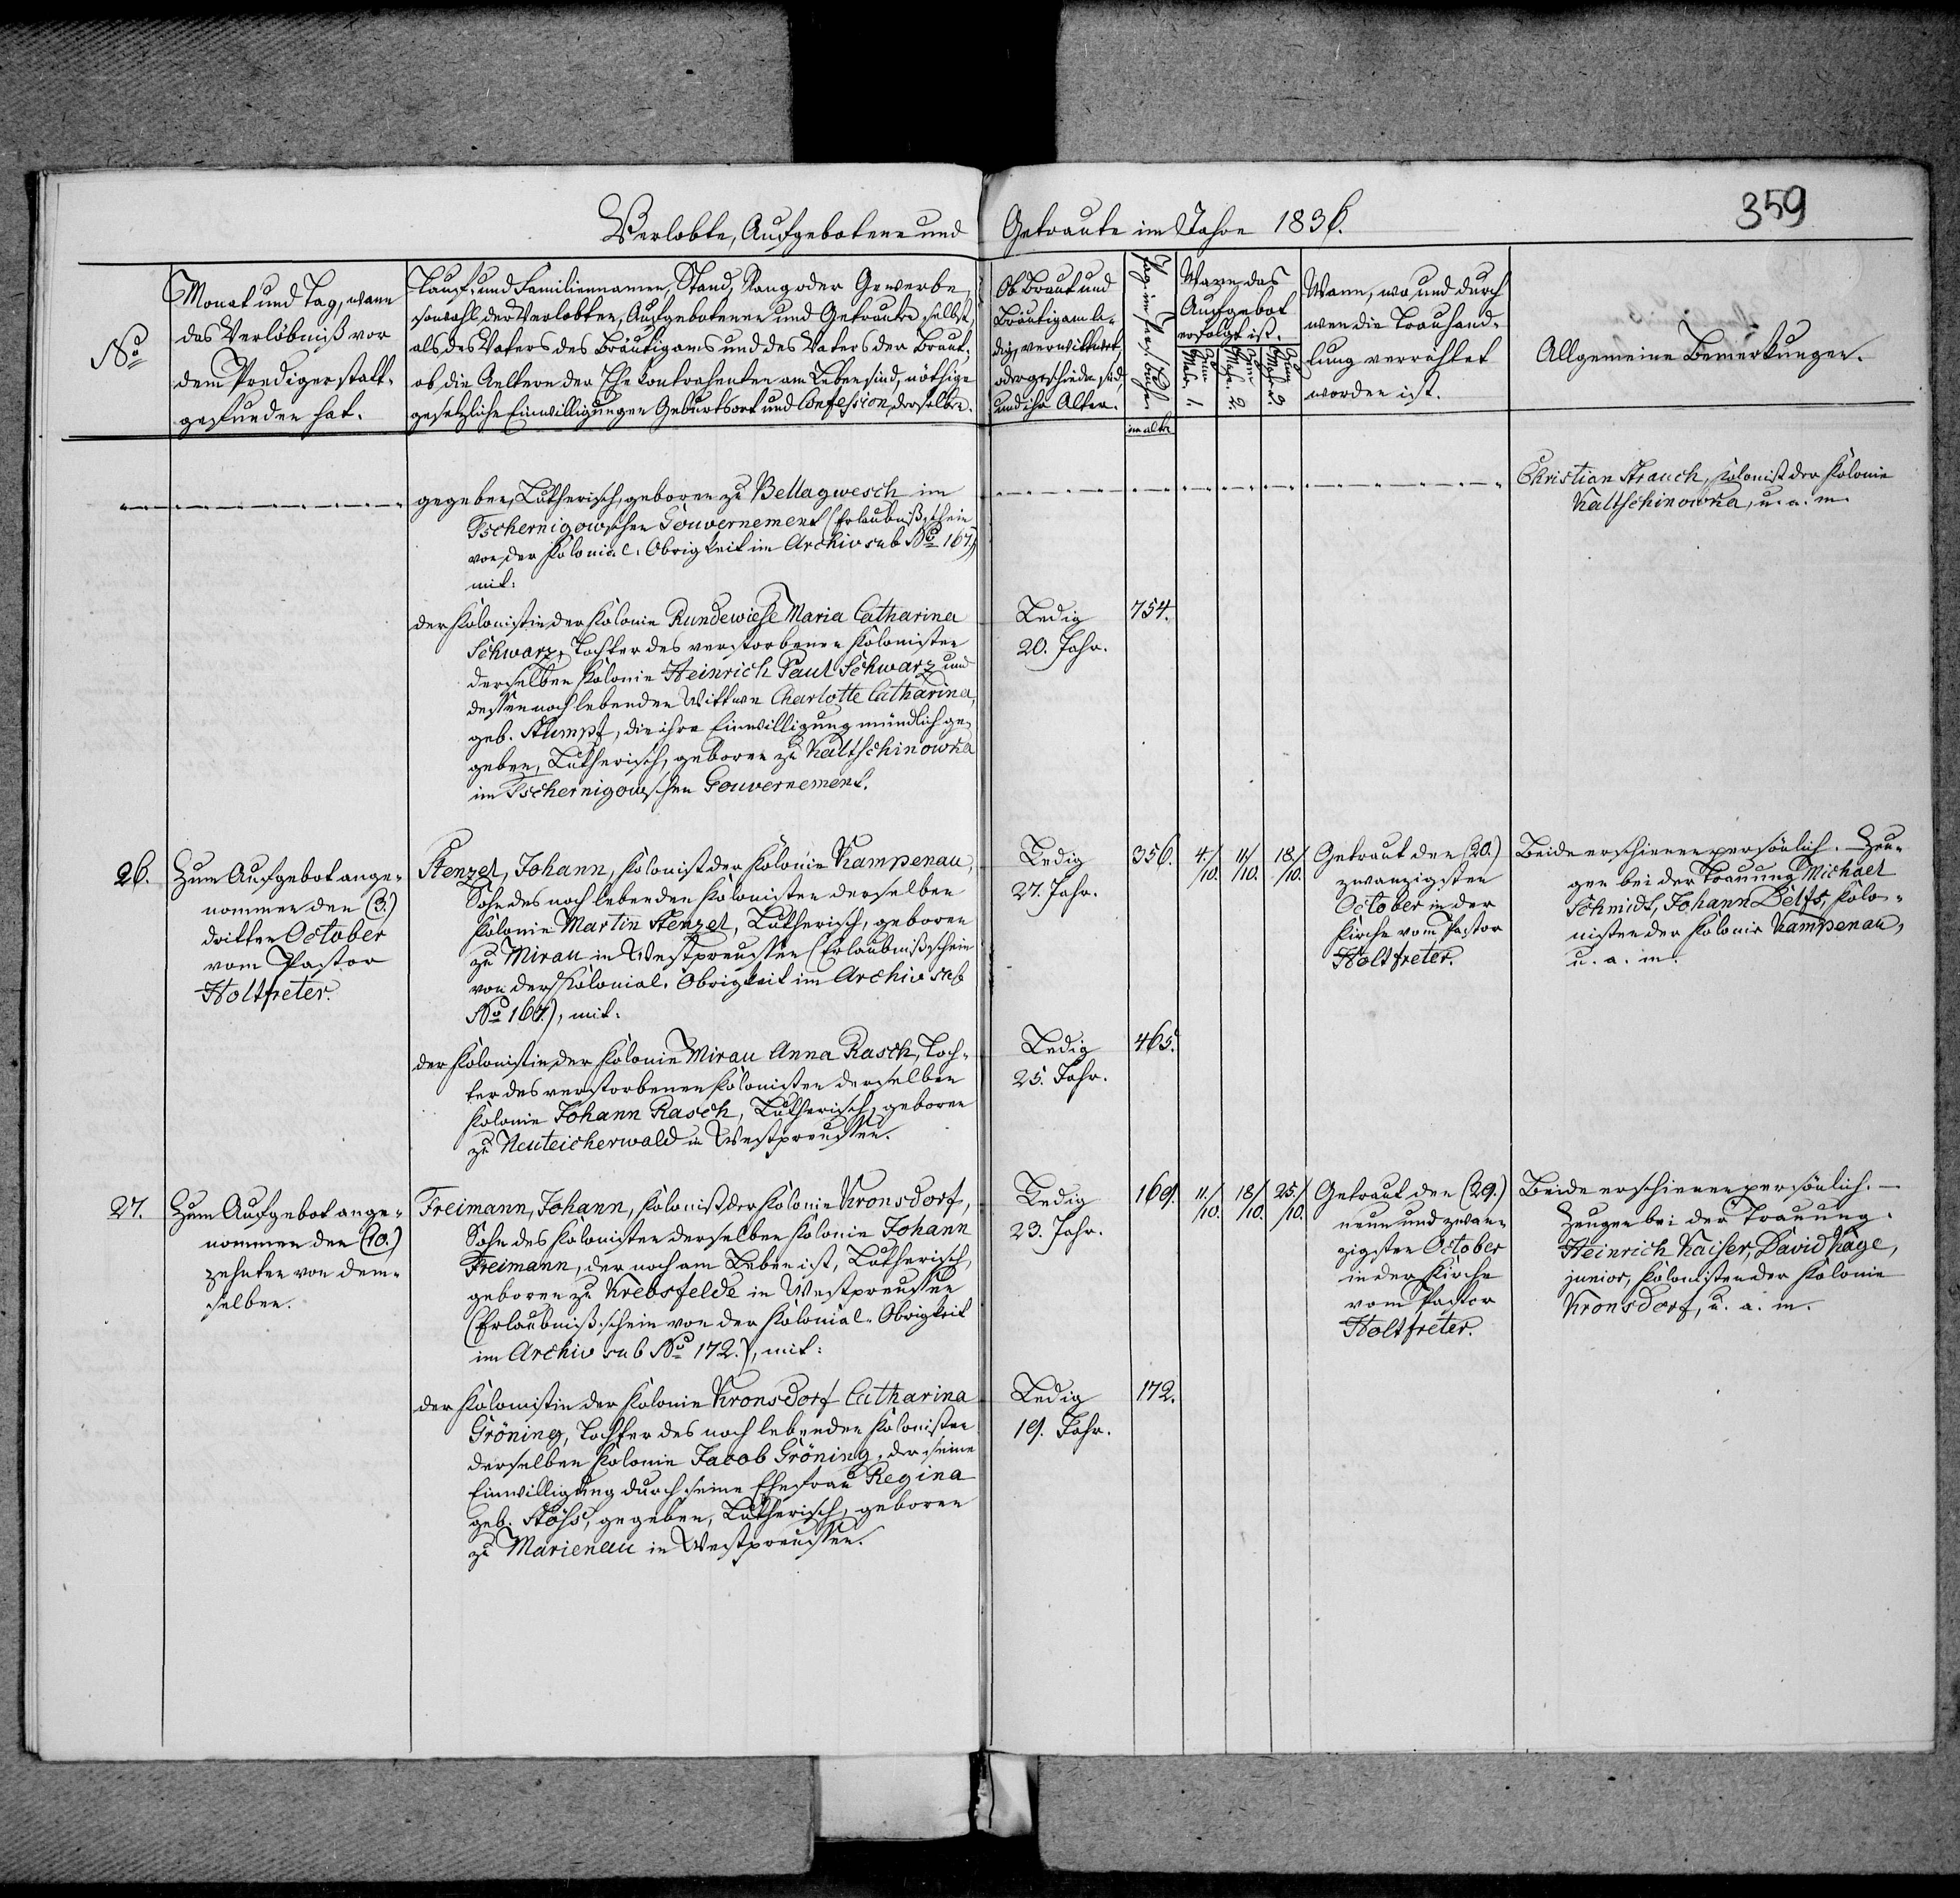 359
Verlobte, Aufgebotene und Getraute im Jahre 1836.
No
Monat und Tag, wann
das Verlöbniß vor
dem Prediger statt-
gefunden hat.
Tauf- und Familiennamen, Stand, Rang oder Gewerbe,
sowohl der Verlobten, Aufgebotenen und Getraute selbst,
als des Vaters des Bräutigams und des Vaters der Braut,
ob die Aeltern der Ehekontrahenten am Leben sind, nöthige
gesetzliche Einwilligungen Geburtsort und Confession derselben.
Ob Braut und
Bräutigam le-
dig, verwittwet,
oder geschieden sind,
und ihr Alter.
im alten
Wann das
Aufgebot
erfolgt ist.
Zum Male. 1.
Zum Male. 2.
Zum Male. 3.
Wann, wo und durch
wen die Trauhand-
lung verrichtet
worden ist.
Allgemeine Bemerkungen.
gegeben, Lutherisch, geboren zu Bellagwesch im
Tschernigowschen Gouvernement (Erlaubnißschein
von der Kolonial-Obrigkeit im Archiv sub No 167.)
mit:
Christian Strauch, Kolonist der Kolonie
Kaltschinowka, u. a. m.
der Kolonistin der Kolonie Rundewiese Maria Catharina
Schwarz, Tochter des verstorbenen Kolonisten
derselben Kolonie Heinrich Paul Schwarz und
dessen noch lebenden Wittwe Charlotte Catharina,
geb. Stumpf, die ihre Einwilligung mündlich ge-
geben, Lutherisch, geboren zu Kaltschinowka
im Tschernigowschen Gouvernement.
Ledig
20. Jahr.
754.
26.
Zum Aufgebot ange-
nommen den (3.)
dritten October
vom Pastor
Holtfreter.
Stenzel, Johann, Kolonist der Kolonie Kampenau,
Sohn des noch lebenden Kolonisten derselben
Kolonie Martin Stenzel, Lutherisch, geboren
zu Mirau in Westpreussen (Erlaubnißschein
von der Kolonial-Obrigkeit im Archiv sub
No 167.), mit:
Ledig
27. Jahr.
356.
4./10.
11/10.
18./10.
Getraut den (20.)
zwanzigsten
October in der
Kirche vom Pastor
Holtfreter.
Beide erschienen persönlich. – Zeu-
gen bei der Trauung Michael
Schmidt, Johann Delfs, Kolo-
nisten der Kolonie Kampenau,
u. a. m.
der Kolonistin der Kolonie Mirau Anna Rasch, Toch-
ter des verstorbenen Kolonisten derselben
Kolonie Johann Rasch, Lutherisch, geboren
zu Neuteicherwald in Westpreussen.
Ledig
25. Jahr.
465.
27.
Zum Aufgebot ange-
nommen den (10.)
zehnten von dem-
selben.
Freimann, Johann, Kolonist der Kolonie Kronsdorf,
Sohn des Kolonisten derselben Kolonie Johann
Freimann, der noch am Leben ist, Lutherisch,
geboren zu Krebsfelde in Westpreussen
(Erlaubnißschein von der Kolonial-Obrigkeit
im Archiv sub No 172.), mit:
Ledig
23. Jahr.
169.
11./10.
18/10.
25./10.
Getraut den (29.)
neun und zwan-
zigsten October
in der Kirche
vom Pastor
Holtfreter.
Beide erschienen persönlich. –
Zeugen bei der Trauung.
Heinrich Kaiser, David Käge,
junior, Kolonisten der Kolonie
Kronsdorf, u. a. m.
der Kolonistin der Kolonie Kronsdorf Catharina
Gröning, Tochter des noch lebenden Kolonisten
derselben Kolonie Jacob Gröning, der seine
Einwilligung durch seine Ehefrau Regina
geb. Stöss, gegeben, Lutherisch, geboren
zu Marienau in Westpreussen.
Ledig
19. Jahr.
172.